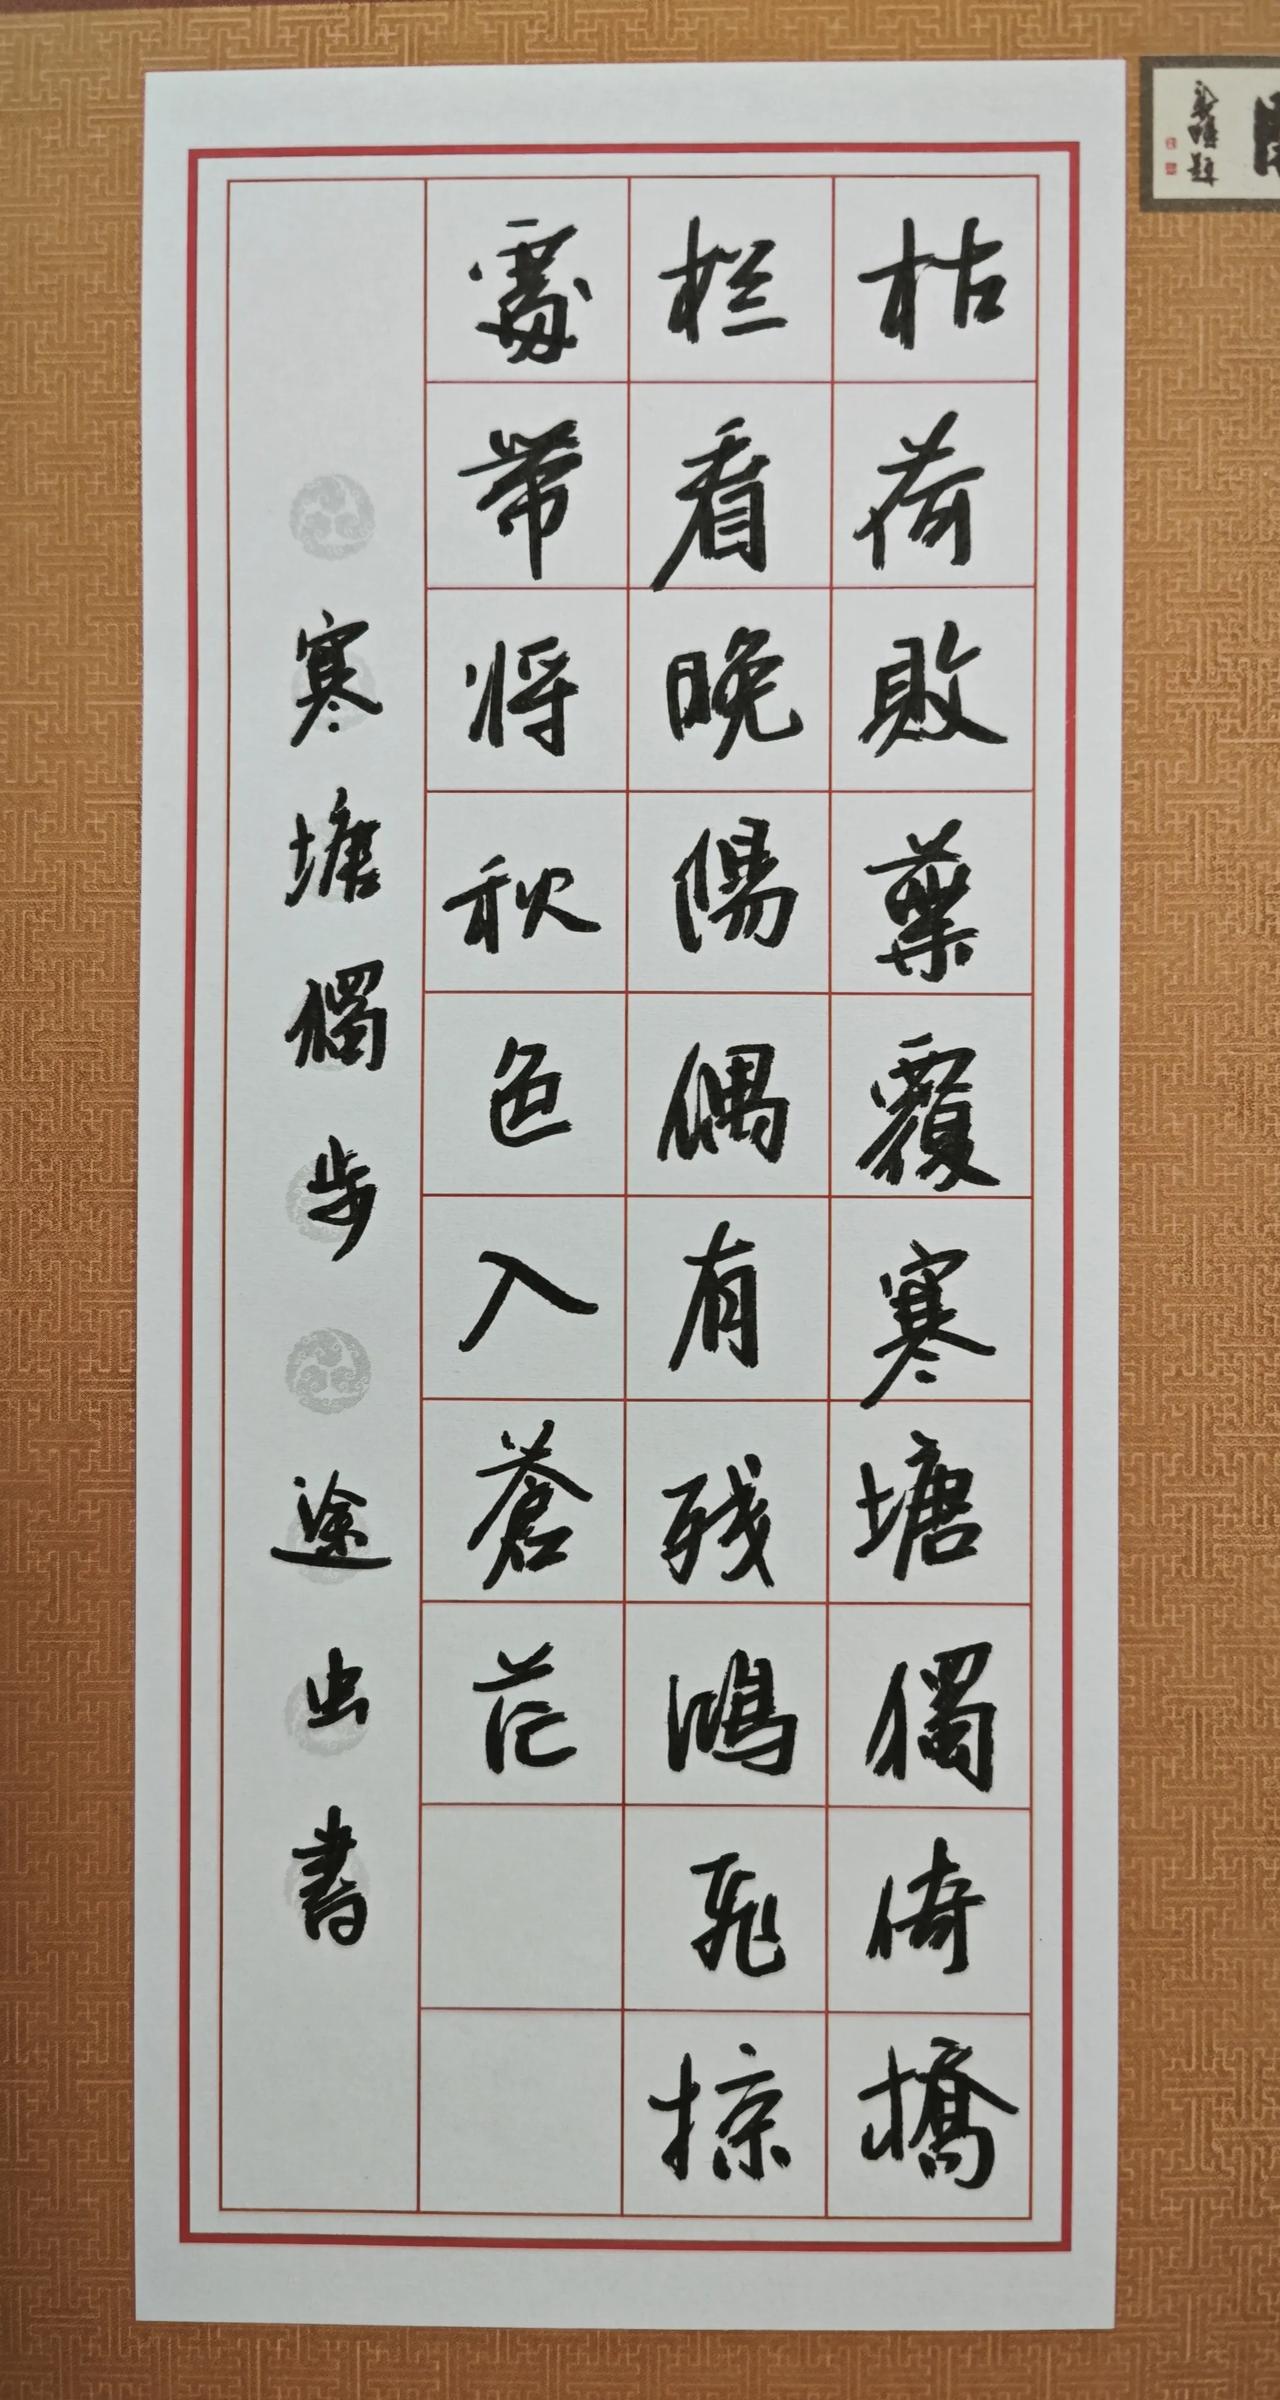 枯荷敗葉覆寒塘獨倚橋
栏看晚陽偶有残鴻飛掠
處带将秋色入蒼茫
寒塘獨步 途虫書